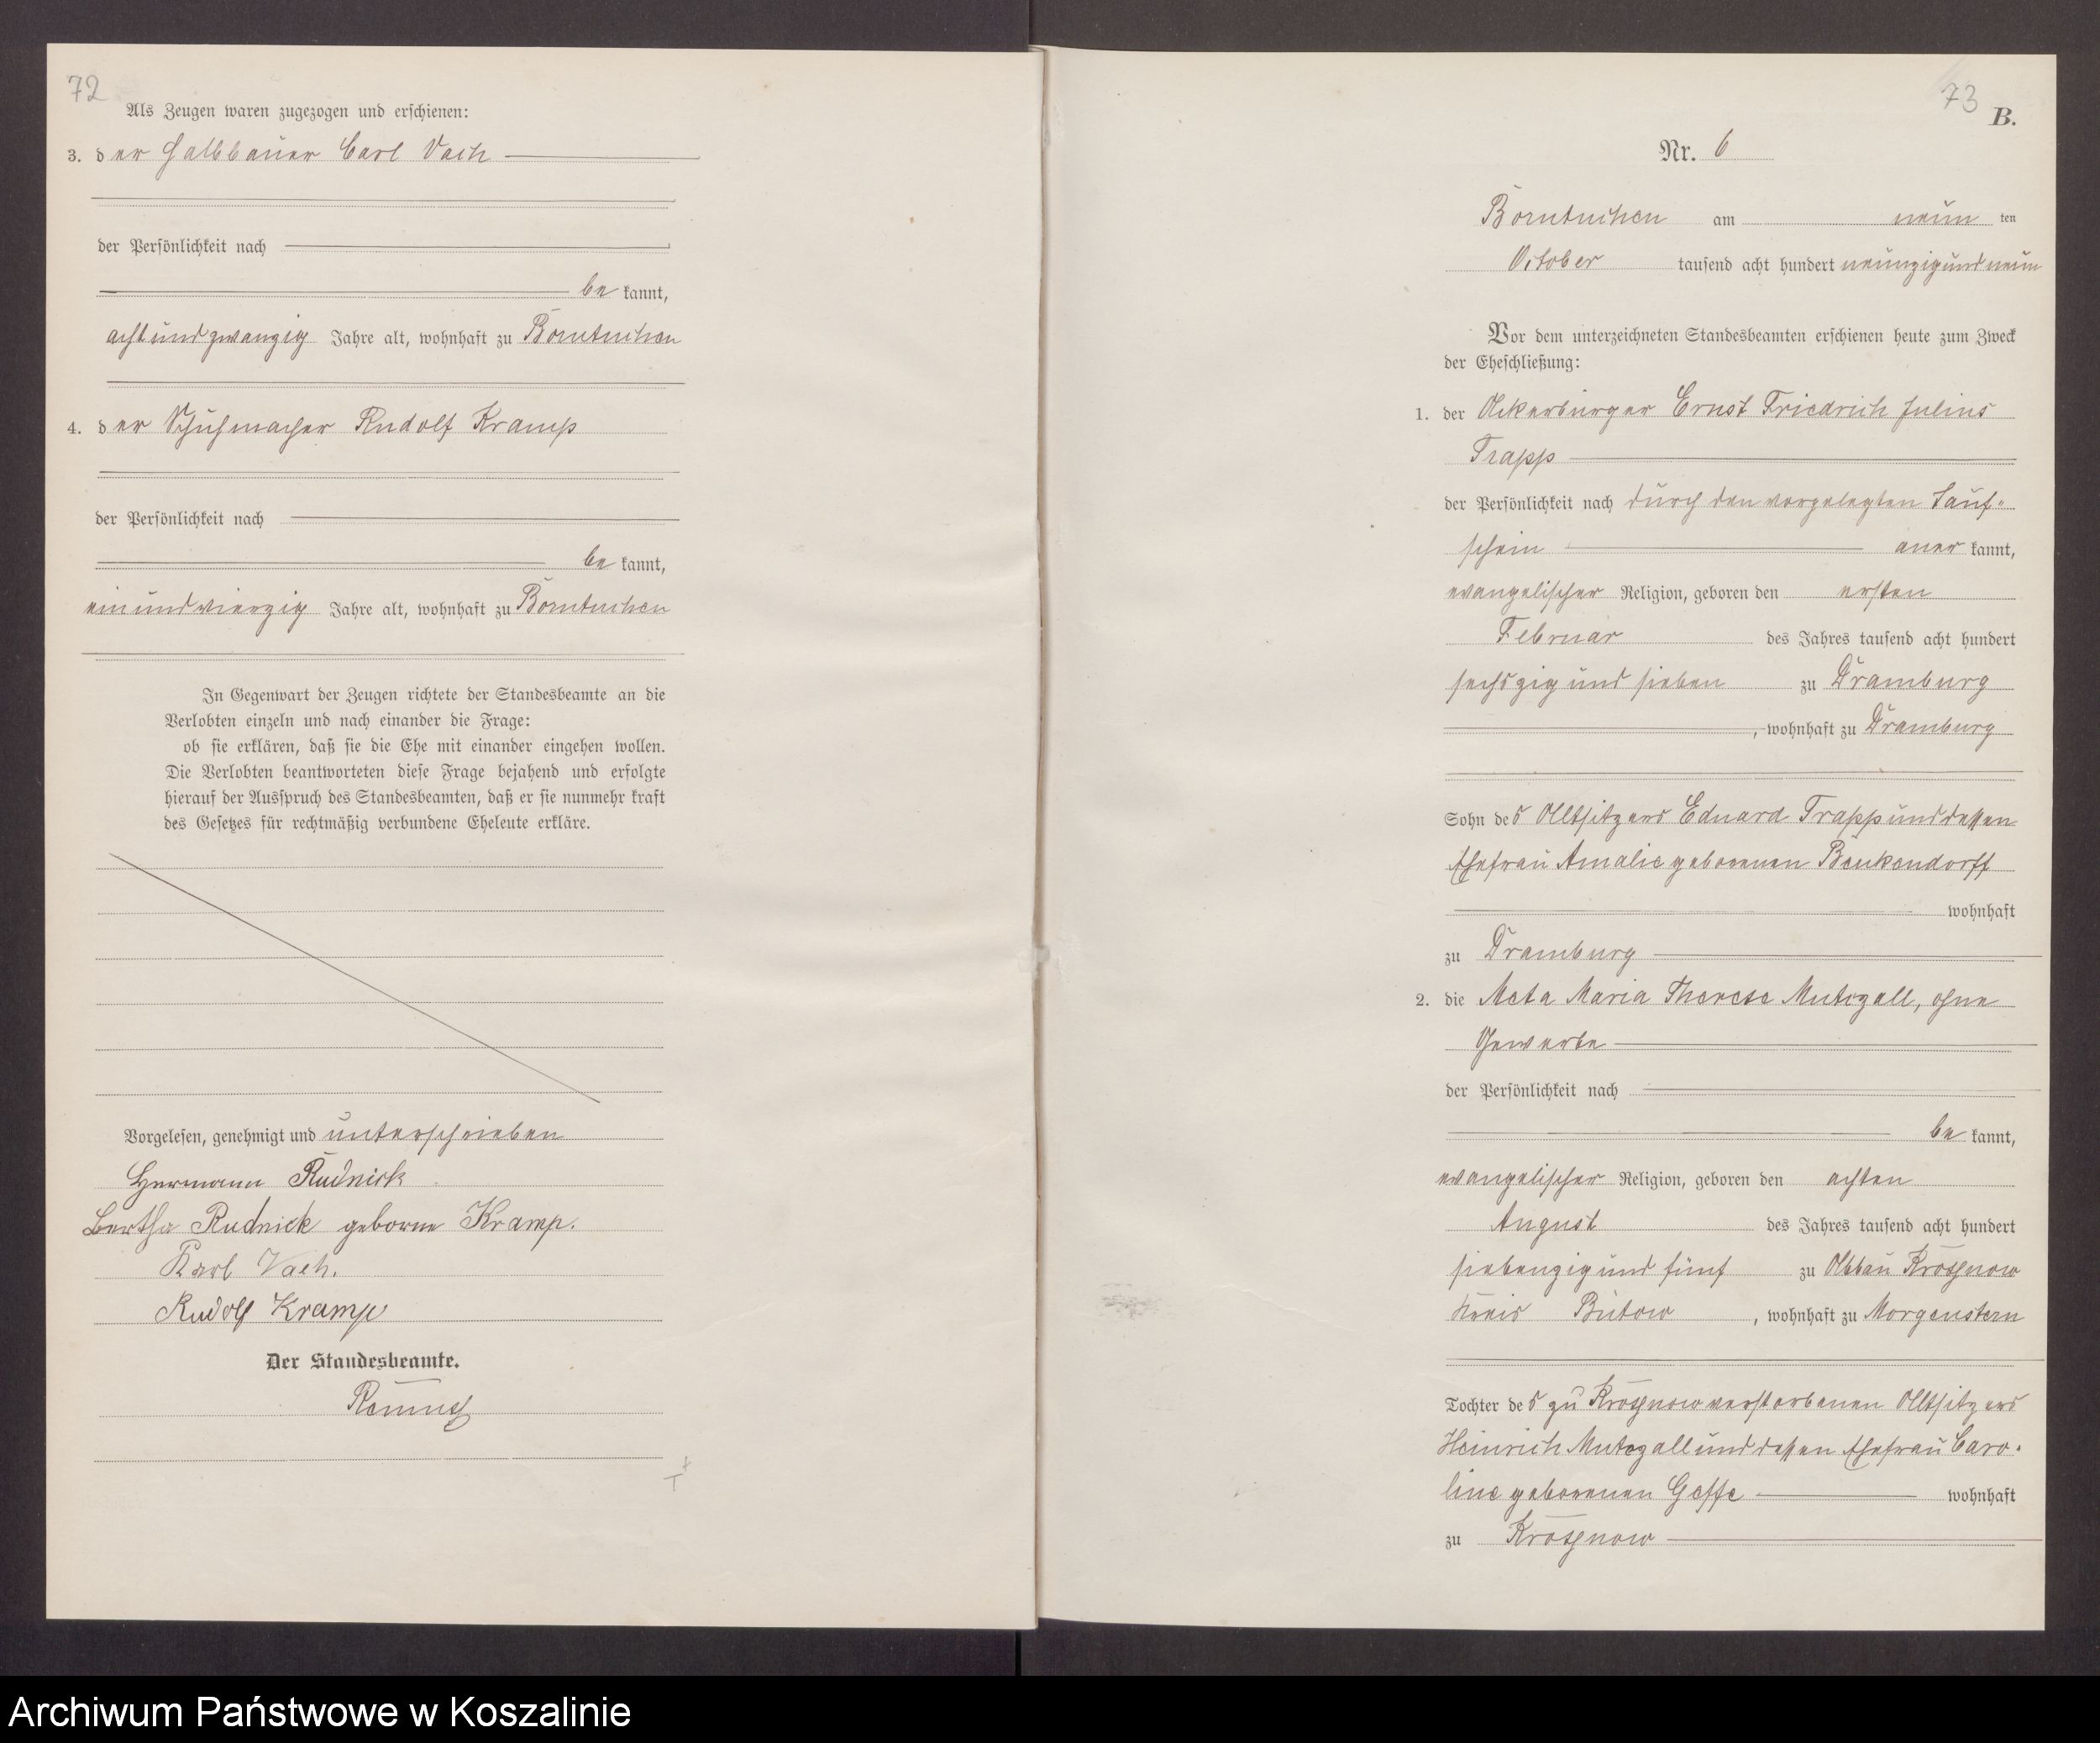 72
Als Zeugen waren zugezogen und erschienen:
3. der Halbbauer Carl Vach
der Persönlichkeit nach
be kannt,
achtundzwanzig Jahre alt, wohnhaft zu Borntuchen
4. der Schuhmacher Rudolf Kramp
der Persönlichkeit nach
be kannt,
einundvierzig Jahre alt, wohnhaft zu Borntuchen
In Gegenwart der Zeugen richtete der Standesbeamte an die
Verlobten einzeln und nach einander die Frage:
ob sie erklären, daß sie die Ehe mit einander eingehen wollen.
Die Verlobten beantworteten diese Frage bejahend und erfolgte
hierauf der Ausspruch des Standesbeamten, daß er sie nunmehr kraft
des Gesetzes für rechtmäßig verbundene Eheleute erkläre.
Vorgelesen, genehmigt und unterschrieben
Hermann Rudnick
Bertha Rudnick geborne Kramp.
Karl Vach.
Rudolf Kramp
Der Standesbeamte.
73
B.
Nr. 6
Borntuchen am neun ten
October tausend acht hundert neunzig und neun
Vor dem unterzeichneten Standesbeamten erschienen heute zum Zweck
der Eheschließung:
1. der Ackerbürger Ernst Friedrich Julius
Trapp
der Persönlichkeit nach durch den vorgelegten Tauf-
schein aner kannt,
evangelischer Religion, geboren den ersten
Februar des Jahres tausend acht hundert
sechszig und sieben zu Dramburg
, wohnhaft zu Dramburg
Sohn des Altsitzers Eduard Trapp und dessen
Ehefrau Amalie geborenen Benkendorff
wohnhaft
zu Dramburg
2. die Meta Maria Therese Mutzgall, ohne
Gewerbe
der Persönlichkeit nach
be kannt,
evangelischer Religion, geboren den achten
August des Jahres tausend acht hundert
siebenzig und fünf zu Abbau Krosnow
Kreis Bütow, wohnhaft zu Morgenstern
Tochter des zu Krosnow verstorbenen Altsitzers
Heinrich Mutzgall und dessen Ehefrau Caro-
line geborenen Geffe wohnhaft
zu Krosnow
Archiwum Państwowe w Koszalinie